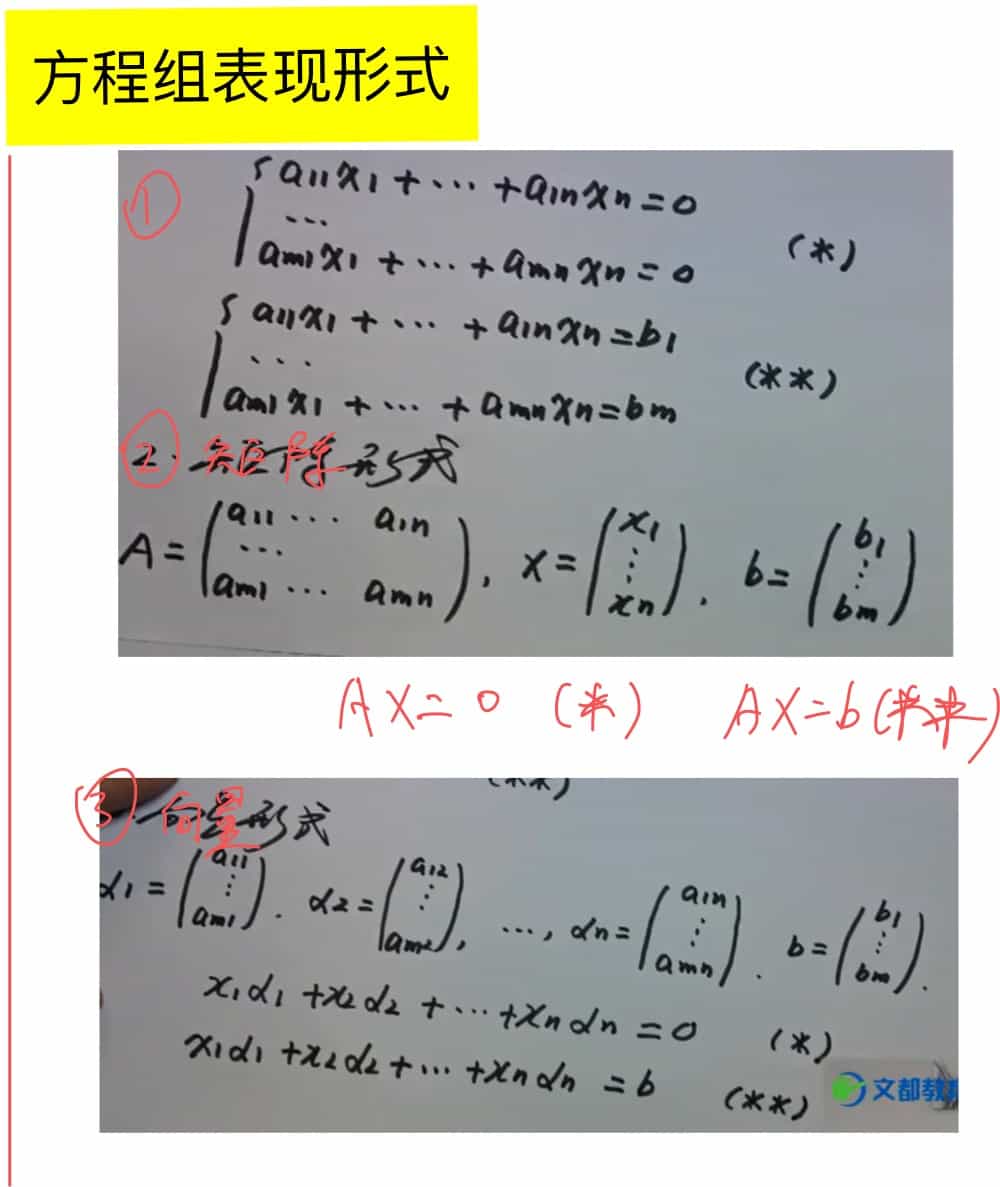 方程组表现形式
① { a11x1 + ··· + a1nxn = 0
···
am1x1 + ··· + amnxn = 0 (*)
{ a11x1 + ··· + a1nxn = b1
···
am1x1 + ··· + amnxn = bm (**)
② 矩阵形式
A = ( a11 ··· a1n ··· am1 ··· amn ), x = ( x1 ⋮ xn ). b = ( b1 ⋮ bm )
AX = 0 (*) AX = b (**)
(**)
③ 向量形式
α1 = ( a11 ⋮ am1 ). α2 = ( a12 ⋮ am2 ), ···, αn = ( a1n ⋮ amn ). b = ( b1 ⋮ bm ).
x1α1 + x2α2 + ··· + xnαn = 0 (*)
x1α1 + x2α2 + ··· + xnαn = b (**)
文都教